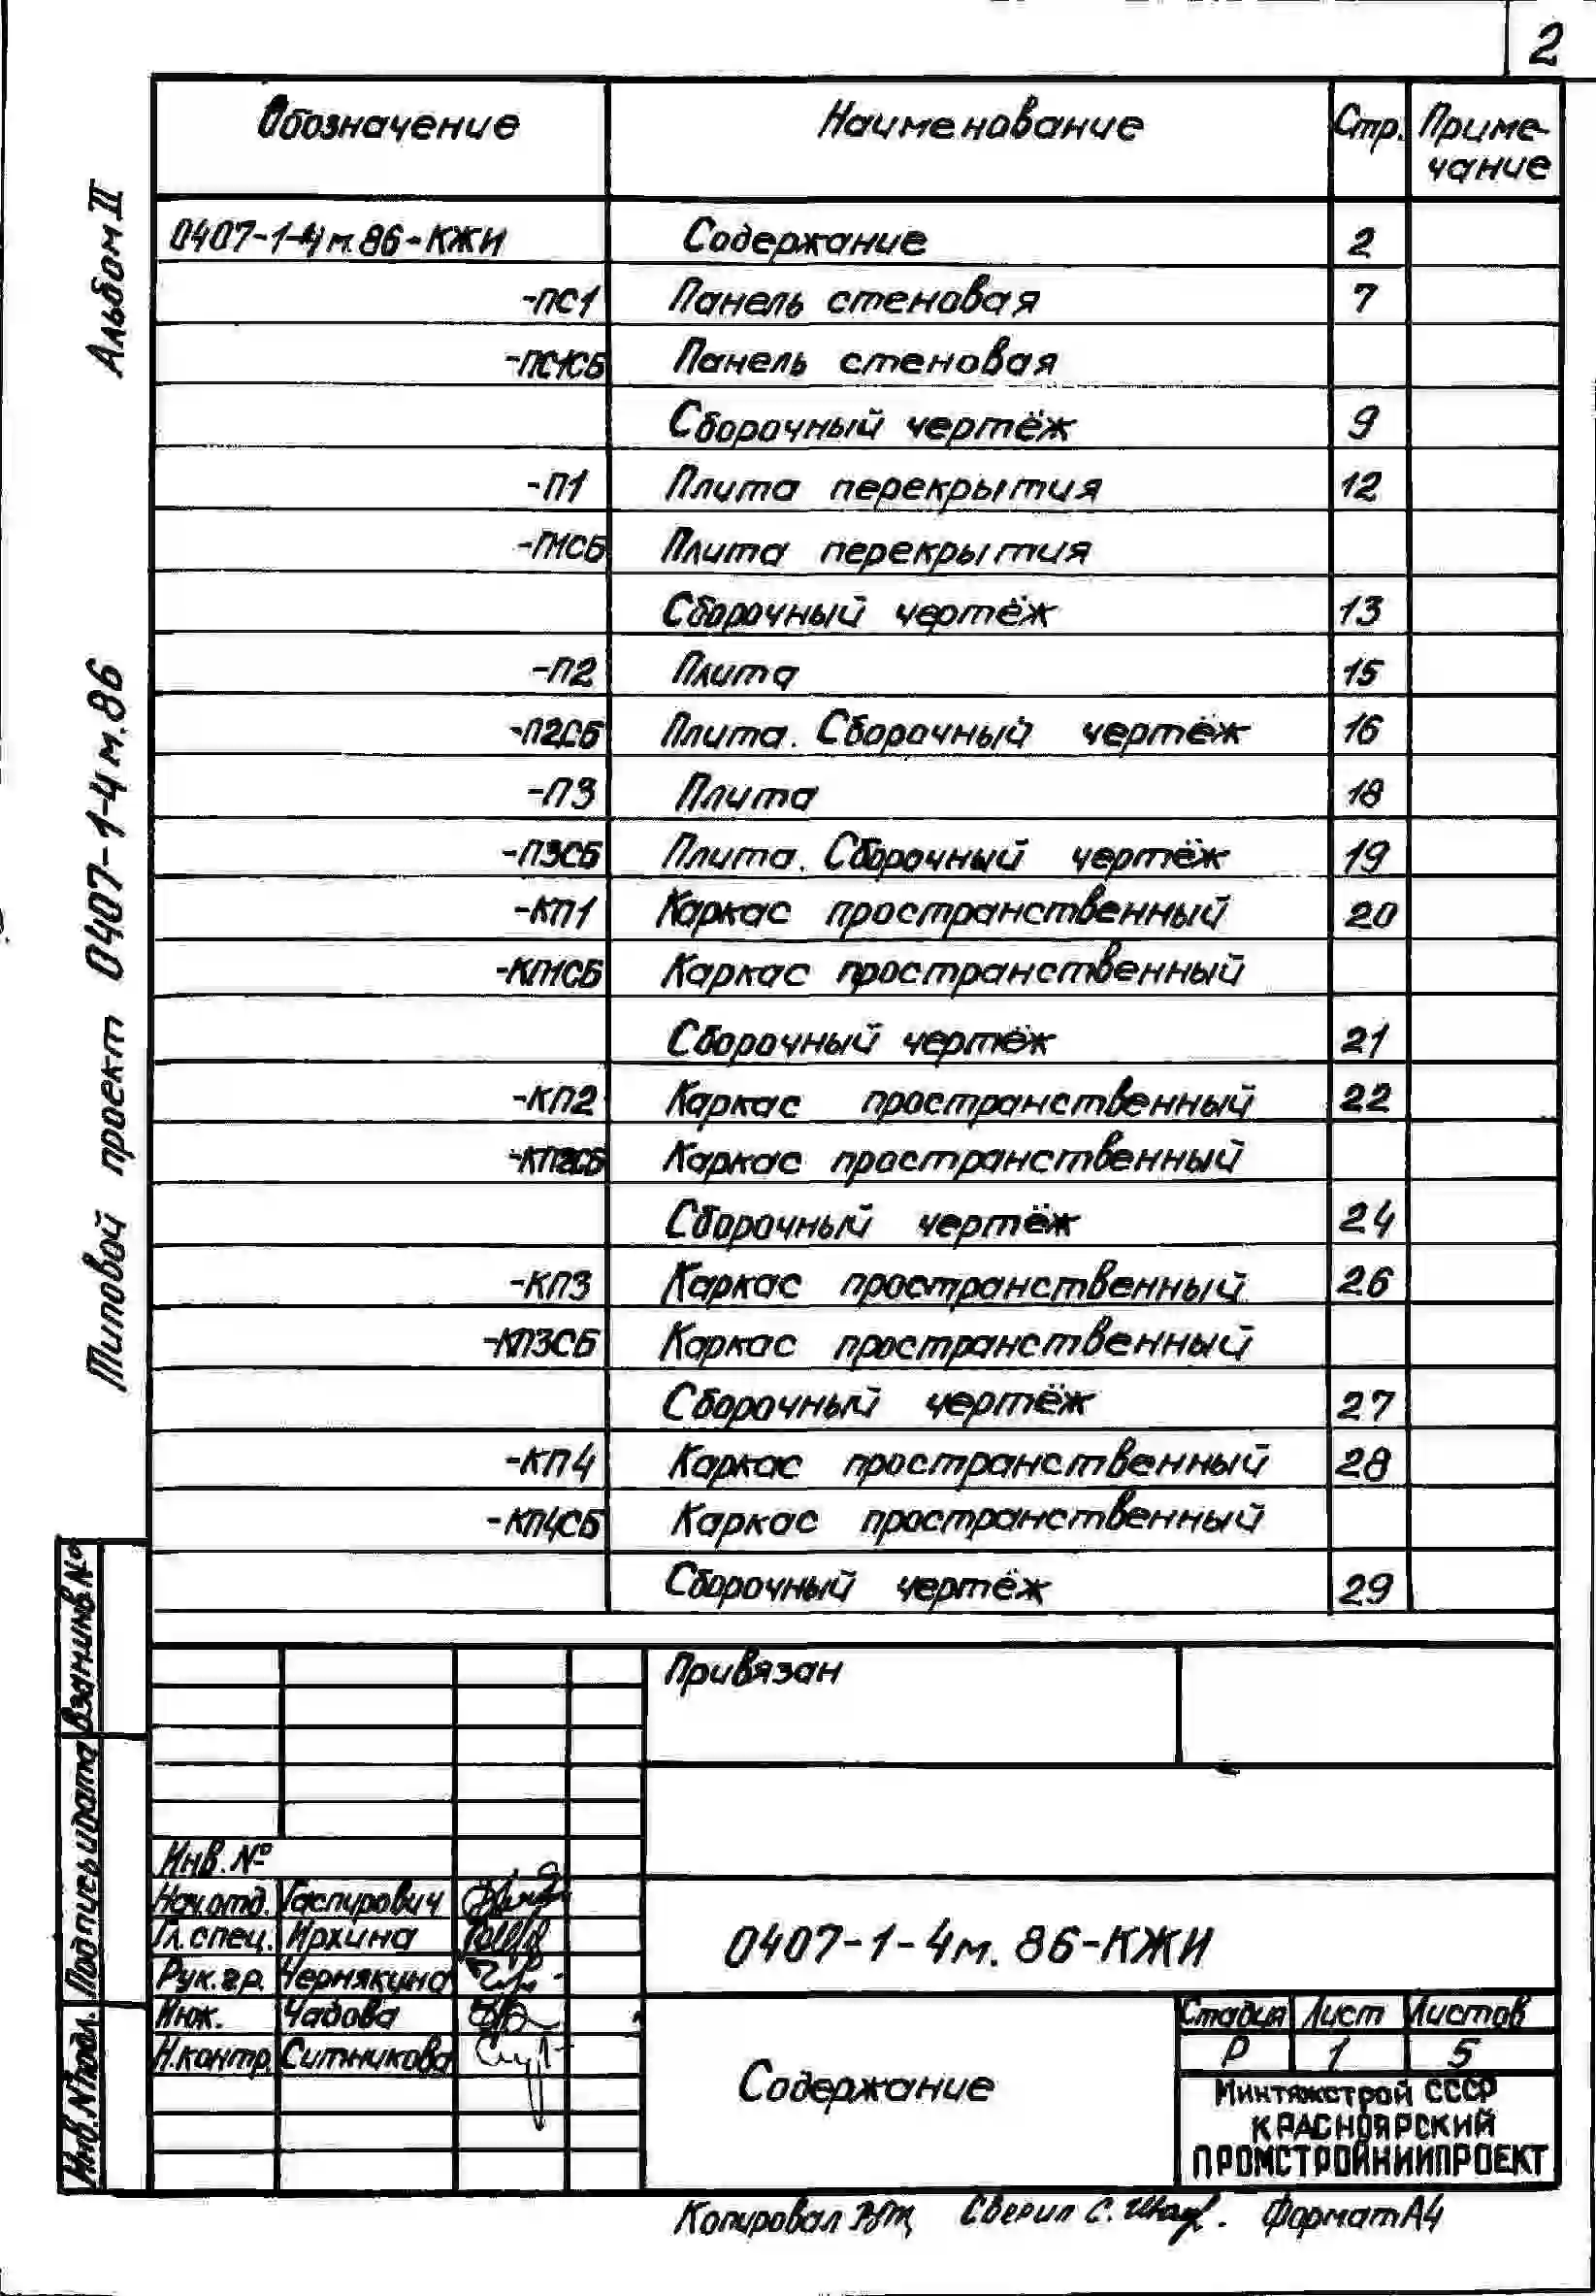 2
Обозначение Наименование Стр. Приме-
чание
0407-1-4м.86-КЖИ Содержание 2
-ПС1 Панель стеновая 7
-ПС1СБ Панель стеновая
Сборочный чертёж 9
-П1 Плита перекрытия 12
-П1СБ Плита перекрытия
Сборочный чертёж 13
-П2 Плита 15
-П2СБ Плита. Сборочный чертёж 16
-П3 Плита 18
-П3СБ Плита. Сборочный чертёж 19
-КП1 Каркас пространственный 20
-КП1СБ Каркас пространственный
Сборочный чертёж 21
-КП2 Каркас пространственный 22
-КП2СБ Каркас пространственный
Сборочный чертёж 24
-КП3 Каркас пространственный 26
-КП3СБ Каркас пространственный
Сборочный чертёж 27
-КП4 Каркас пространственный 28
-КП4СБ Каркас пространственный
Сборочный чертёж 29
Альбом II
Типовой проект 0407-1-4м.86
Взам.инв.№
Подпись и дата
Инв.№подл.
Привязан
Инв.№
Нач.отд. Гаспирович
Гл.спец. Ирхина
Рук.гр. Чернякина
Инж. Чадова
Н.контр. Ситникова
0407-1-4м.86-КЖИ
Содержание
Стадия Лист Листов
Р 1 5
Минтяжстрой СССР
КРАСНОЯРСКИЙ
ПРОМСТРОЙНИИПРОЕКТ
Копировал Сверил С. Формат А4